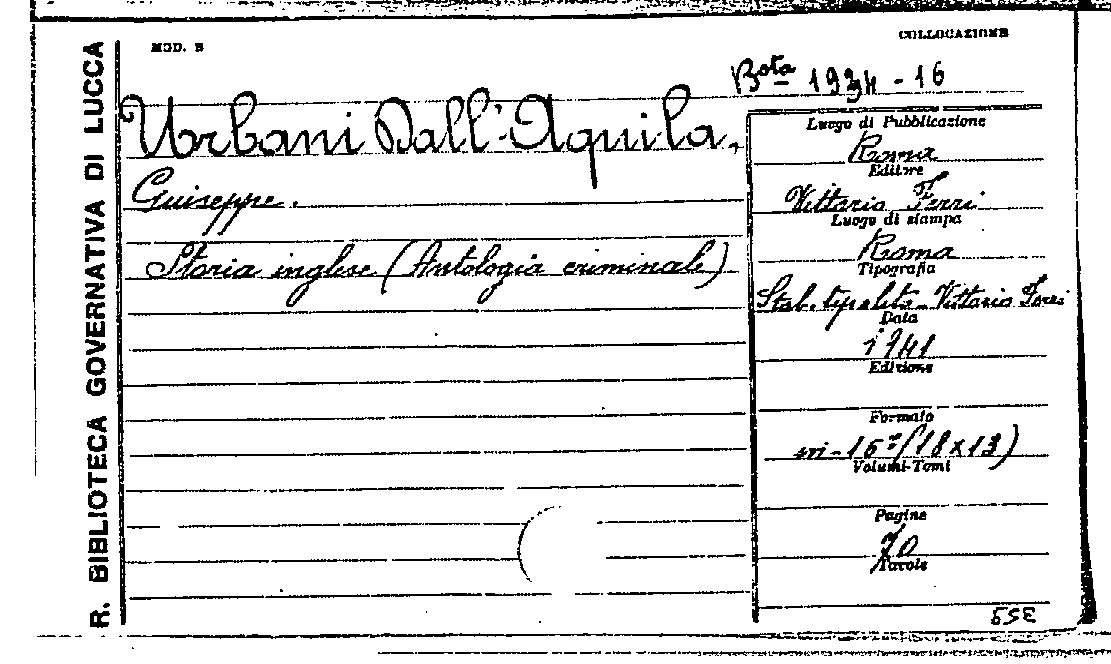 R. BIBLIOTECA GOVERNATIVA DI LUCCA
MOD. B
COLLOCAZIONE
Bᵒᵗᵃ 1934 - 16
Urbani Dall'Aquila,
Guiseppe.
Storia inglese (Antologia criminale)
Luogo di Pubblicazione
Roma
Editore
Vittorio Ferri
Luogo di stampa
Roma
Tipografia
Stab. tipolito. Vittorio Ferri
Data
1941
Edizione
Formato
in-16º (18x13)
Volumi-Tomi
Pagine
70
Tavole